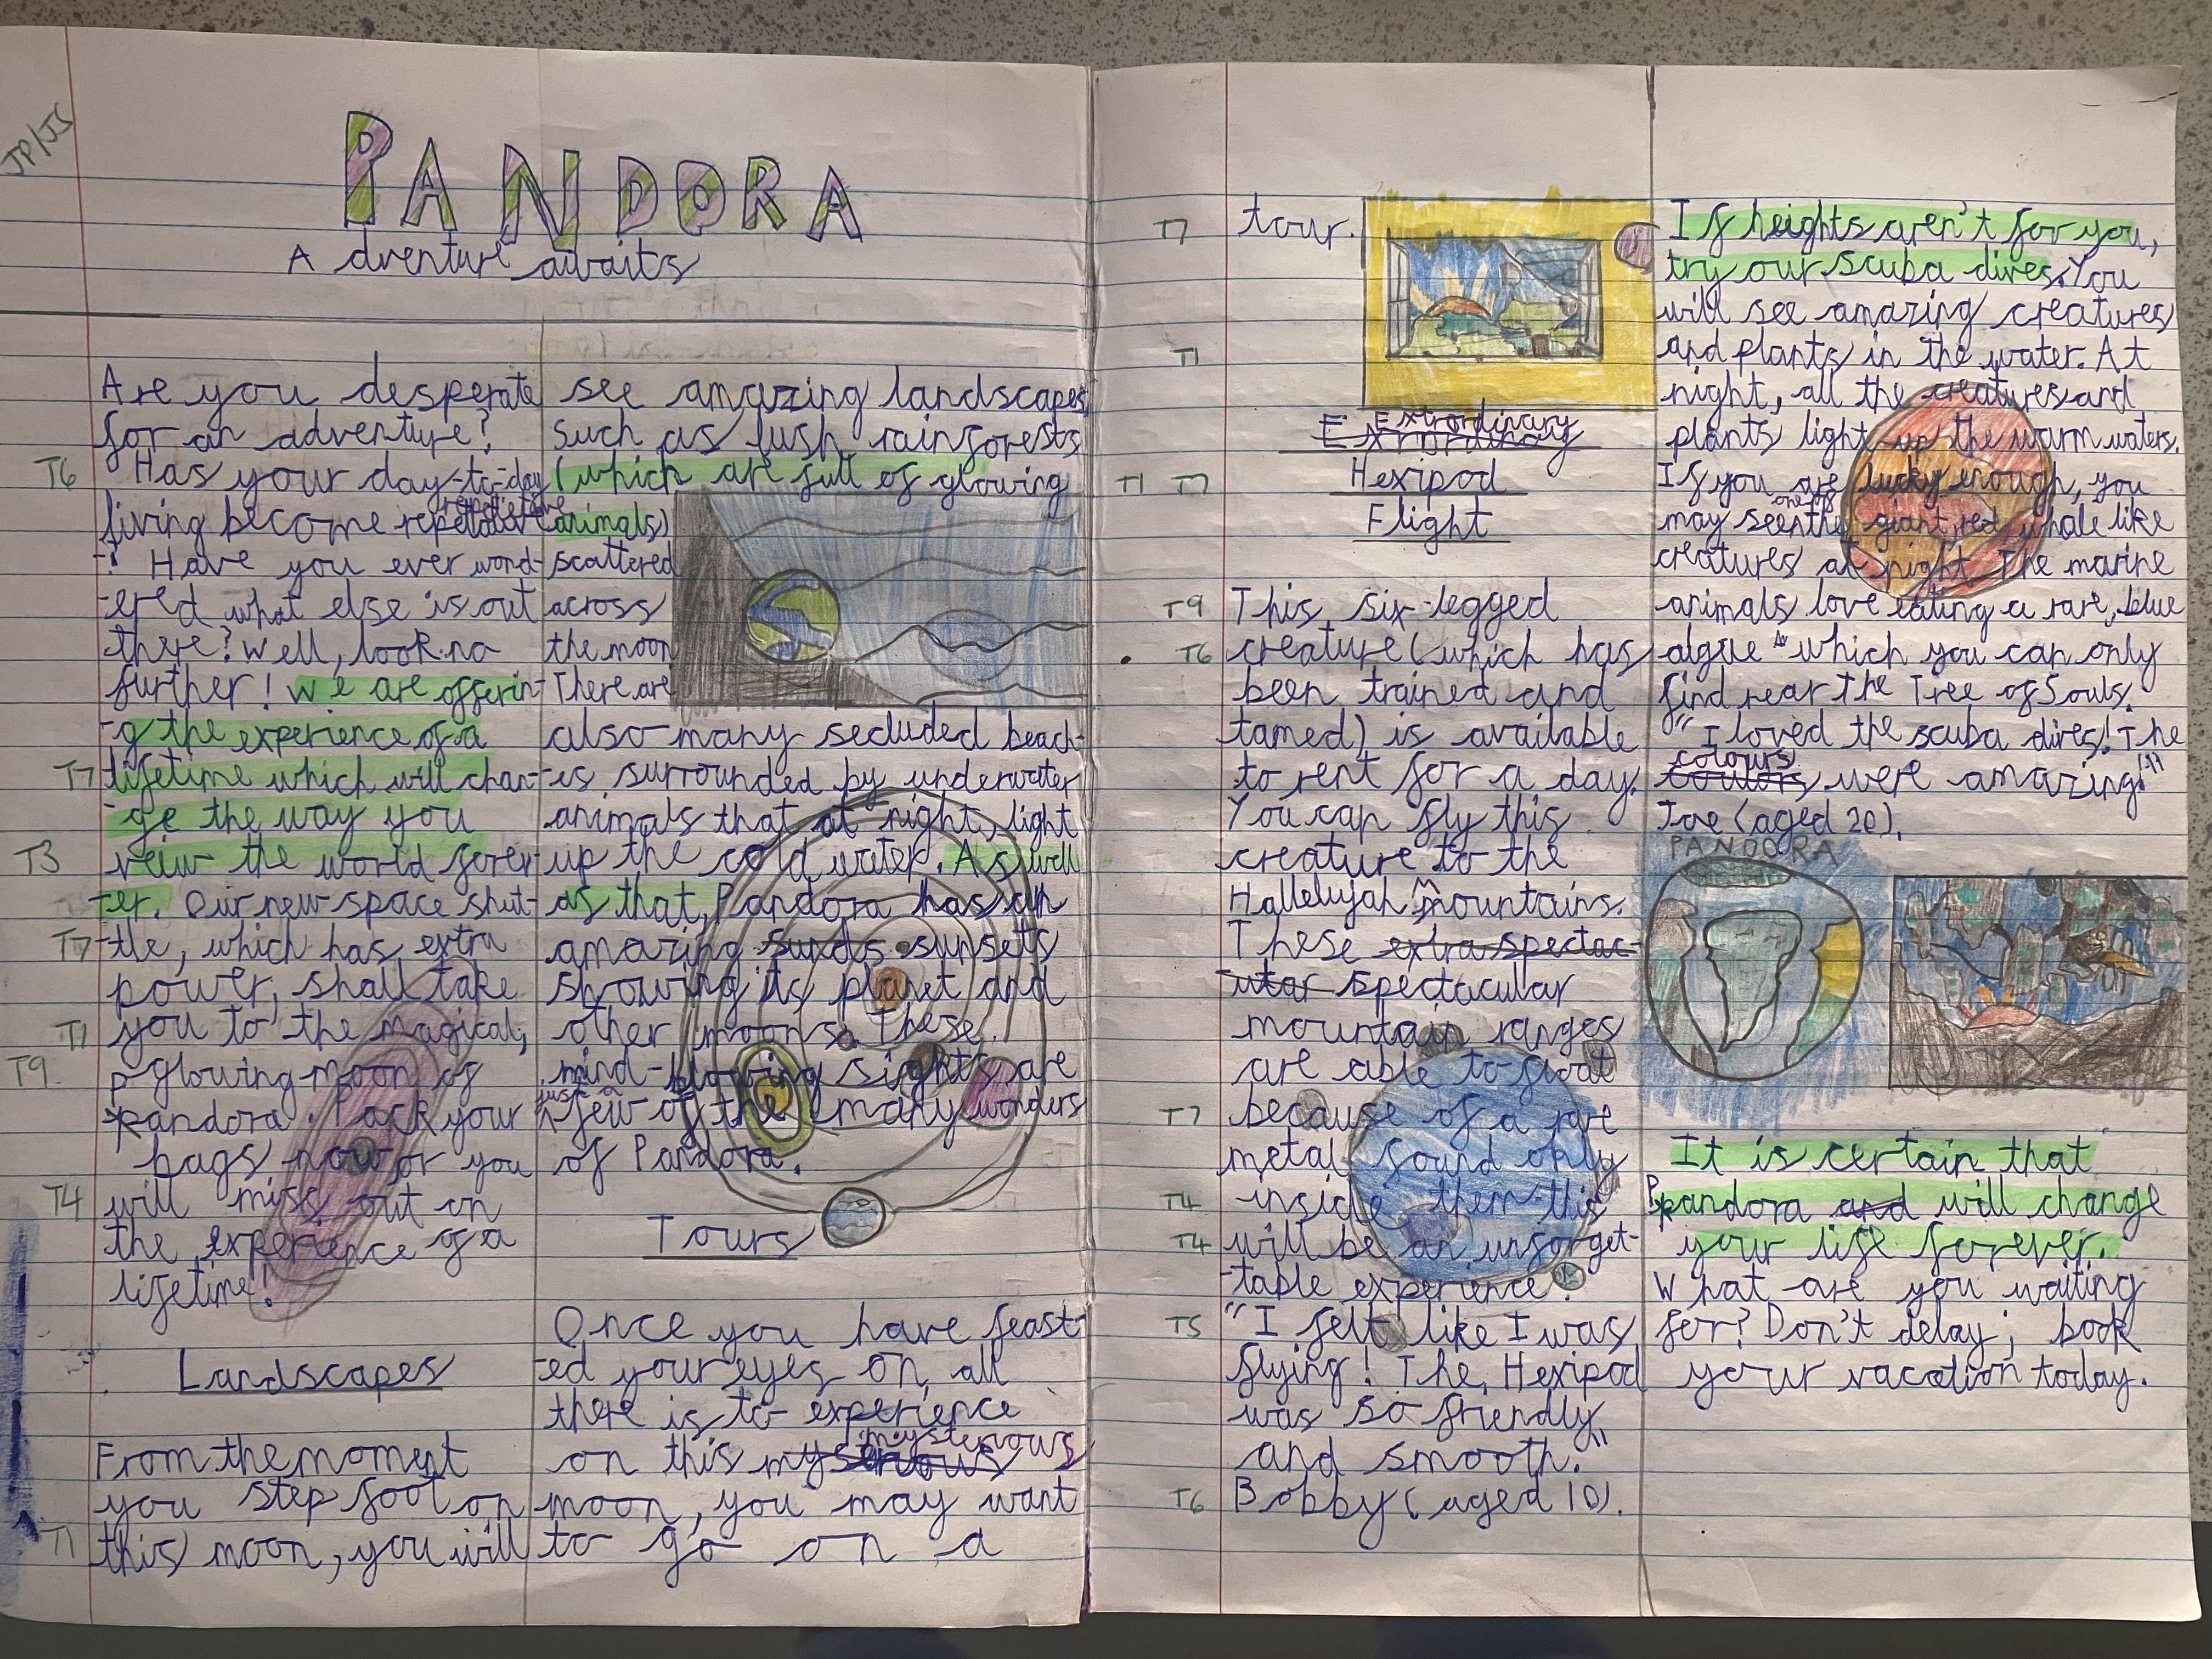 JP/JS
PANDORA
Adventure awaits
Are you desperate
for an adventure?
T6
Has your day-to-day
repetetive
living become repetative
? Have you ever wond-
-ered what else is out
there? Well, look no
further! We are offerin-
-g the experience of a
T7
lifetime which will chan-
-ge the way you
T3
veiw the world forev-
-er. Our new space shut-
T7
-tle, which has extra
power, shall take
T1
you to the magical,
T9
glowing moon of
P
pandora. Pack your
bags now or you
T4
will miss out on
the experience of a
lifetime!
Landscapes
From the moment
you step foot on
T1
this moon, you will
see amazing landscapes
such as lush rainforests
(which are full of glowing
animals)
scattered
across
the moon
There are
also many secluded beach-
-is surrounded by underwater
animals that at night, light
up the cold water. As well
as that, Pandora has an
amazing sunds sunsets
showing its planet and
other moons. These
mind-blowing sights are
just a
few of the many wonders
of Pandora.
Tours
Once you have feast-
-ed your eyes on all
there is to experience
mysterious
on this
moon, you may want
to go on a
T7
tour.
T1
Extrordinary
Exrordinary
T1 T7
Hexipod
Flight
T9
This six-legged
T6
creature (which has
been trained and
tamed) is available
to rent for a day.
You can fly this
creature to the
Hallelujah Mountains.
These extra spectac-
-ular spectacular
mountain ranges
are able to float
T7
because of a rare
metal found only
T4
inside them this
T4
will be an unforget-
-table experience.
T5
"I felt like I was
flying! The Hexipod
was so friendly
and smooth."
T6
Bobby (aged 10).
If heights aren't for you,
try our scuba dives. You
will see amazing creatures
and plants in the water. At
night, all the creatures and
plants light up the warm waters.
If you are lucky enough, you
one of
may see the giant, red, whale like
creatures at night The marine
animals love eating a rare, blue
algae which you can only
find near the Tree of Souls.
"I loved the scuba dives! The
colours
coulors were amazing!"
Joe (aged 20).
PANDORA
It is certain that
P
pandora and will change
your life forever.
What are you waiting
for? Don't delay; book
your vacation today.